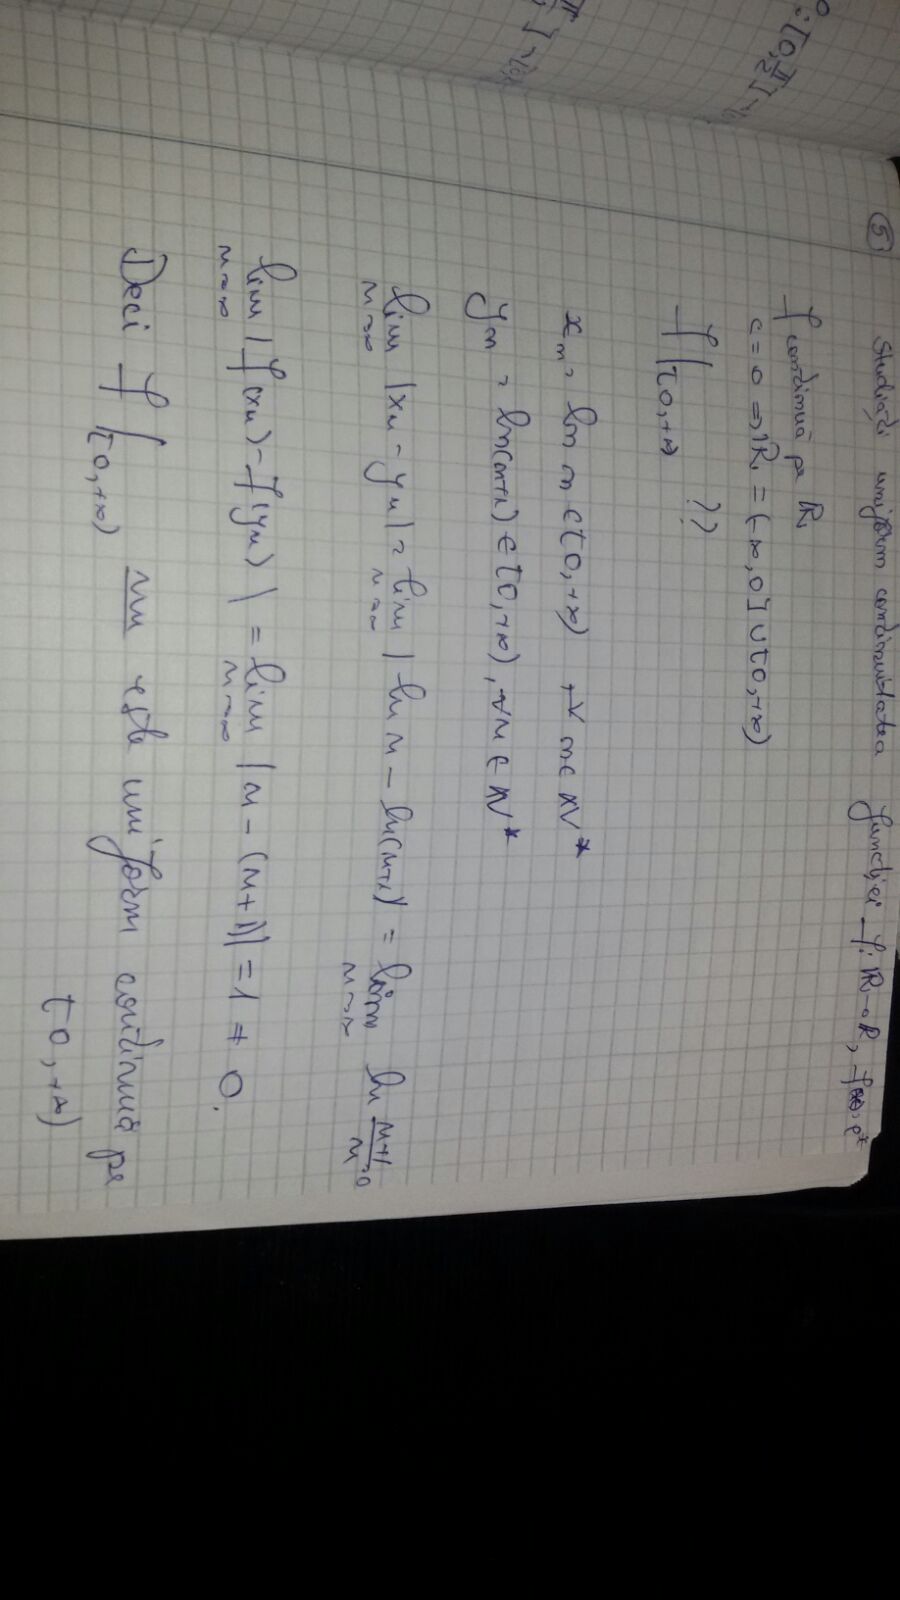 ⑤ Studiați uniform continuitatea funcției f: ℝ→ℝ, f(x)=e^x
f continuă pe ℝ
c=0 ⇒ ℝ = (-∞,0] ∪ [0,+∞)
f|[0,+∞) ??
x_n = ln n ∈ [0,+∞) ∀ n∈ ℕ*
y_n = ln(n+1) ∈ [0,+∞), ∀n ∈ ℕ*
lim n→∞ |x_n - y_n| = lim n→∞ |ln n - ln(n+1)| = lim n→∞ ln (n+1)/n = 0
lim n→∞ |f(x_n) - f(y_n)| = lim n→∞ |n - (n+1)| = 1 ≠ 0.
Deci f|[0,+∞) nu este uniform continuă pe
[0,+∞)
: [0, π/2] →